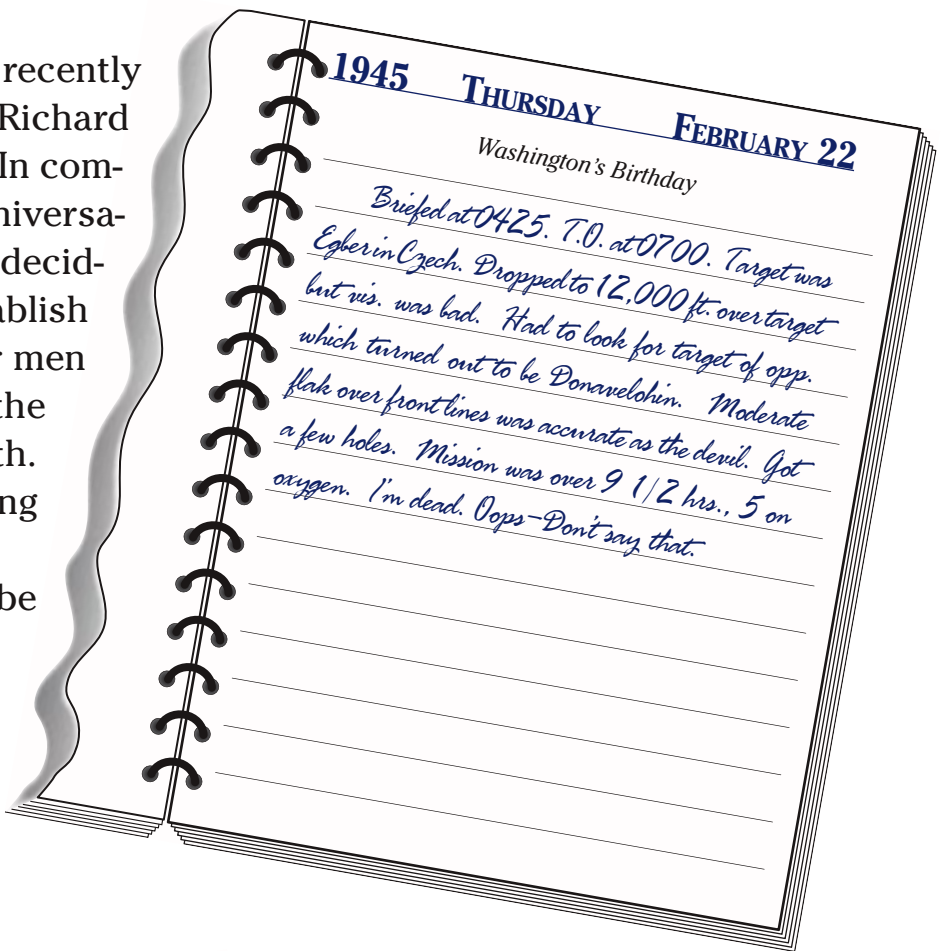 recently
Richard
In com-
niversa-
decid-
ablish
men
the
th.
ng
be
1945 THURSDAY FEBRUARY 22
Washington's Birthday
Briefed at 0425. T.O. at 0700. Target was
Egber in Czech. Dropped to 12,000 ft. over target
but vis. was bad. Had to look for target of opp.
which turned out to be Donavelohin. Moderate
flak over front lines was accurate as the devil. Got
a few holes. Mission was over 9 1/2 hrs., 5 on
oxygen. I'm dead. Oops-Don't say that.